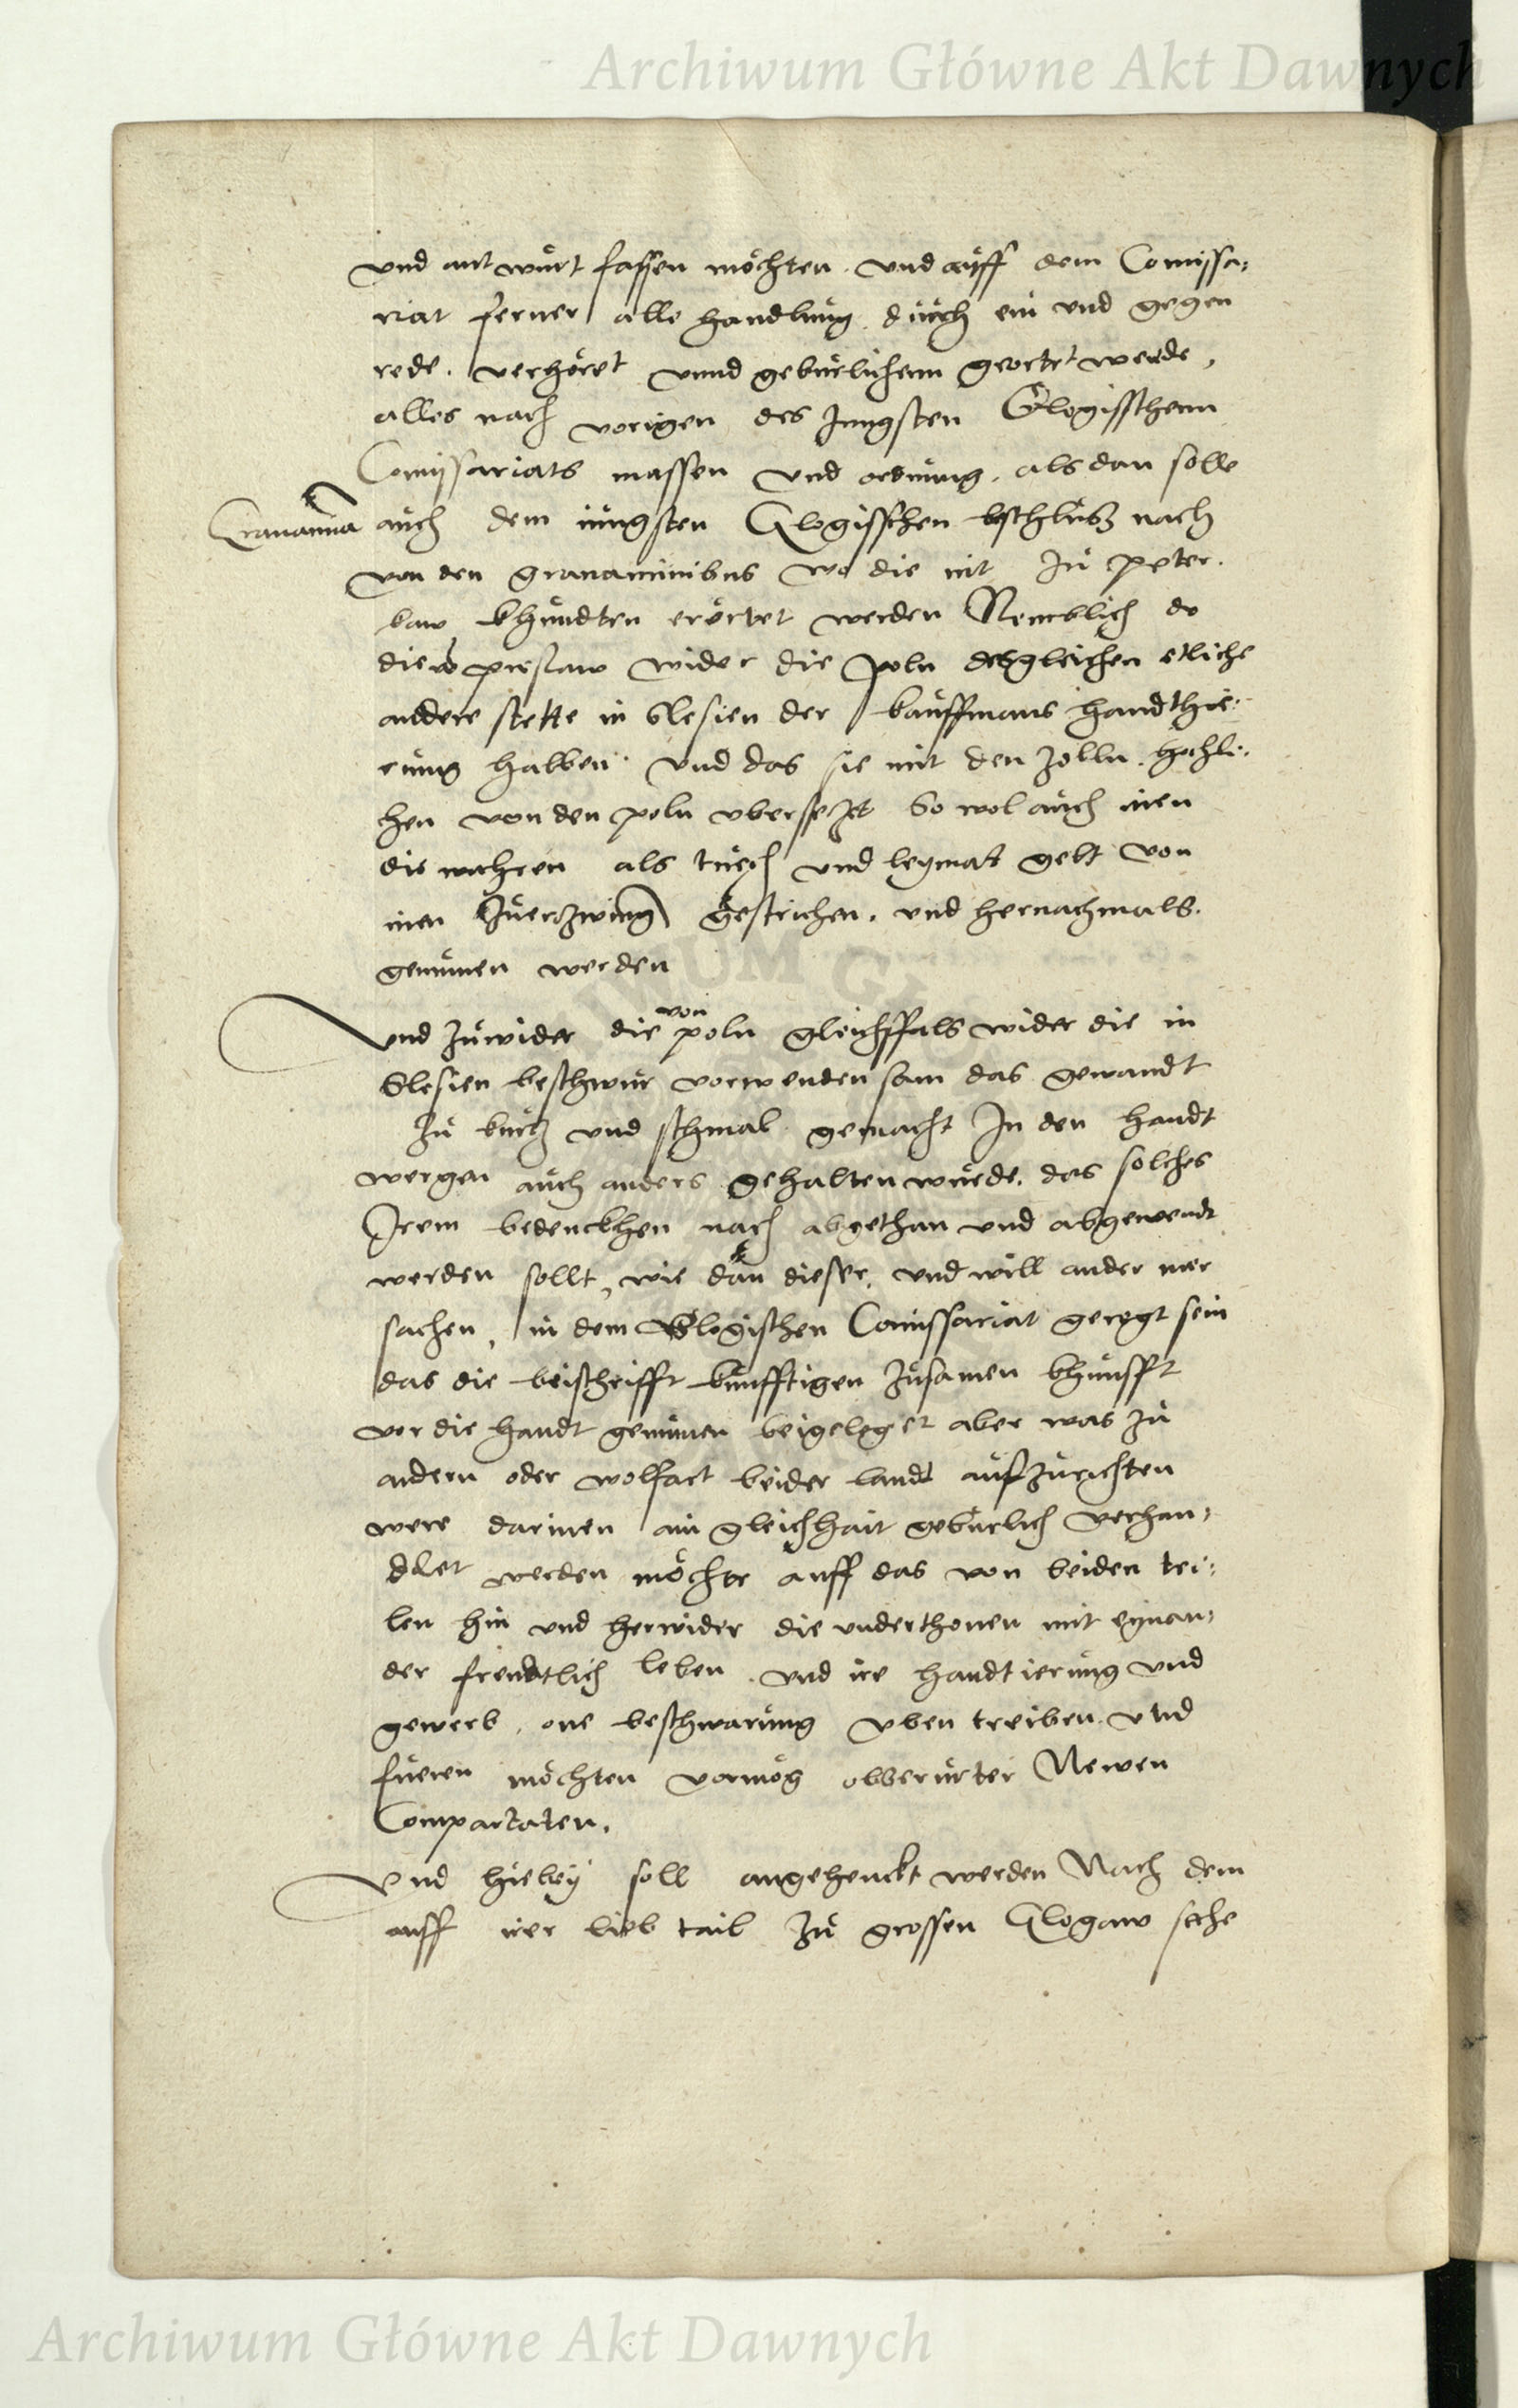 Archiwum Główne Akt Dawnych
und antwurt fassen möchten. und auff dem Comissa:
riat ferner alle handlung durch ein und gegen
rede. verhöret unnd gebürlichenn geortet werde,
alles nach vorigen des Jungsten Glogisschenn
Comissariats massen und ordnung. als dan solle
Grauamina auch dem jungsten Glogisschen beschluß nach
von den grauaminibus wo die nit zu peter.
kaw khundten erörtet werden Nemblich do
die preslaw wider die poln desgleichen etliche
anddere stette in Slesien der kauffmans handthie:
rung halben. und das sie mit den zolln.
hen von den poln ubersezt So wol auch inen
die wahren als tuech und legmat gelt von
inen gestrichen. und hernachmals.
genumen werden
von
Und zuwider die poln gleichffals wider die in
Slesien beschwur vorwenden sam das gewandt
zu kurtz und schmal gemacht In den handt
wergen auch anders gehalten wurde. das solches
Irem bedenckhen nach abgethan und abgewendt
werden sollt, wie dan dieser. und will ander mer
sachen, in dem Glogischen Comissariat geregt sein
das die beischrifft kunfftigen zusamen khunfft
vor die handt genumen beigeleget aber was zu
andern oder wolfart beider landt aufzurichten
were darinen ain gleichhait gebürlich verhan:
dlet werden möchte auff das von beiden tei:
len hin und herwider die underthonen mit eynan:
der freundtlich leben. und ire handtierung und
gewerb. one beschwarung uben treiben. und
fueren möchten vermög obberürter Newen
Compactaten.
Und hiebey soll angehenckt werden Nach dem
auff irer lieb tail zu grossen Glogaw sechs
Archiwum Główne Akt Dawnych